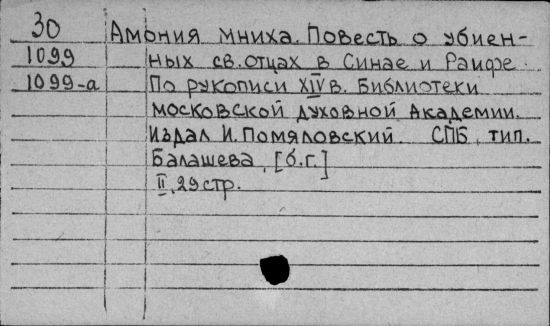 30 Амония мниха. Повесть о убиен-
1099 ных св. отцах в Синае и Раифе.
1099-а По рукописи XIV в. Библиотеки
московской духовной Академии.
Издал И. Помяловский. СПБ, тип.
Балашева, [б.г.]
II, 29 стр.